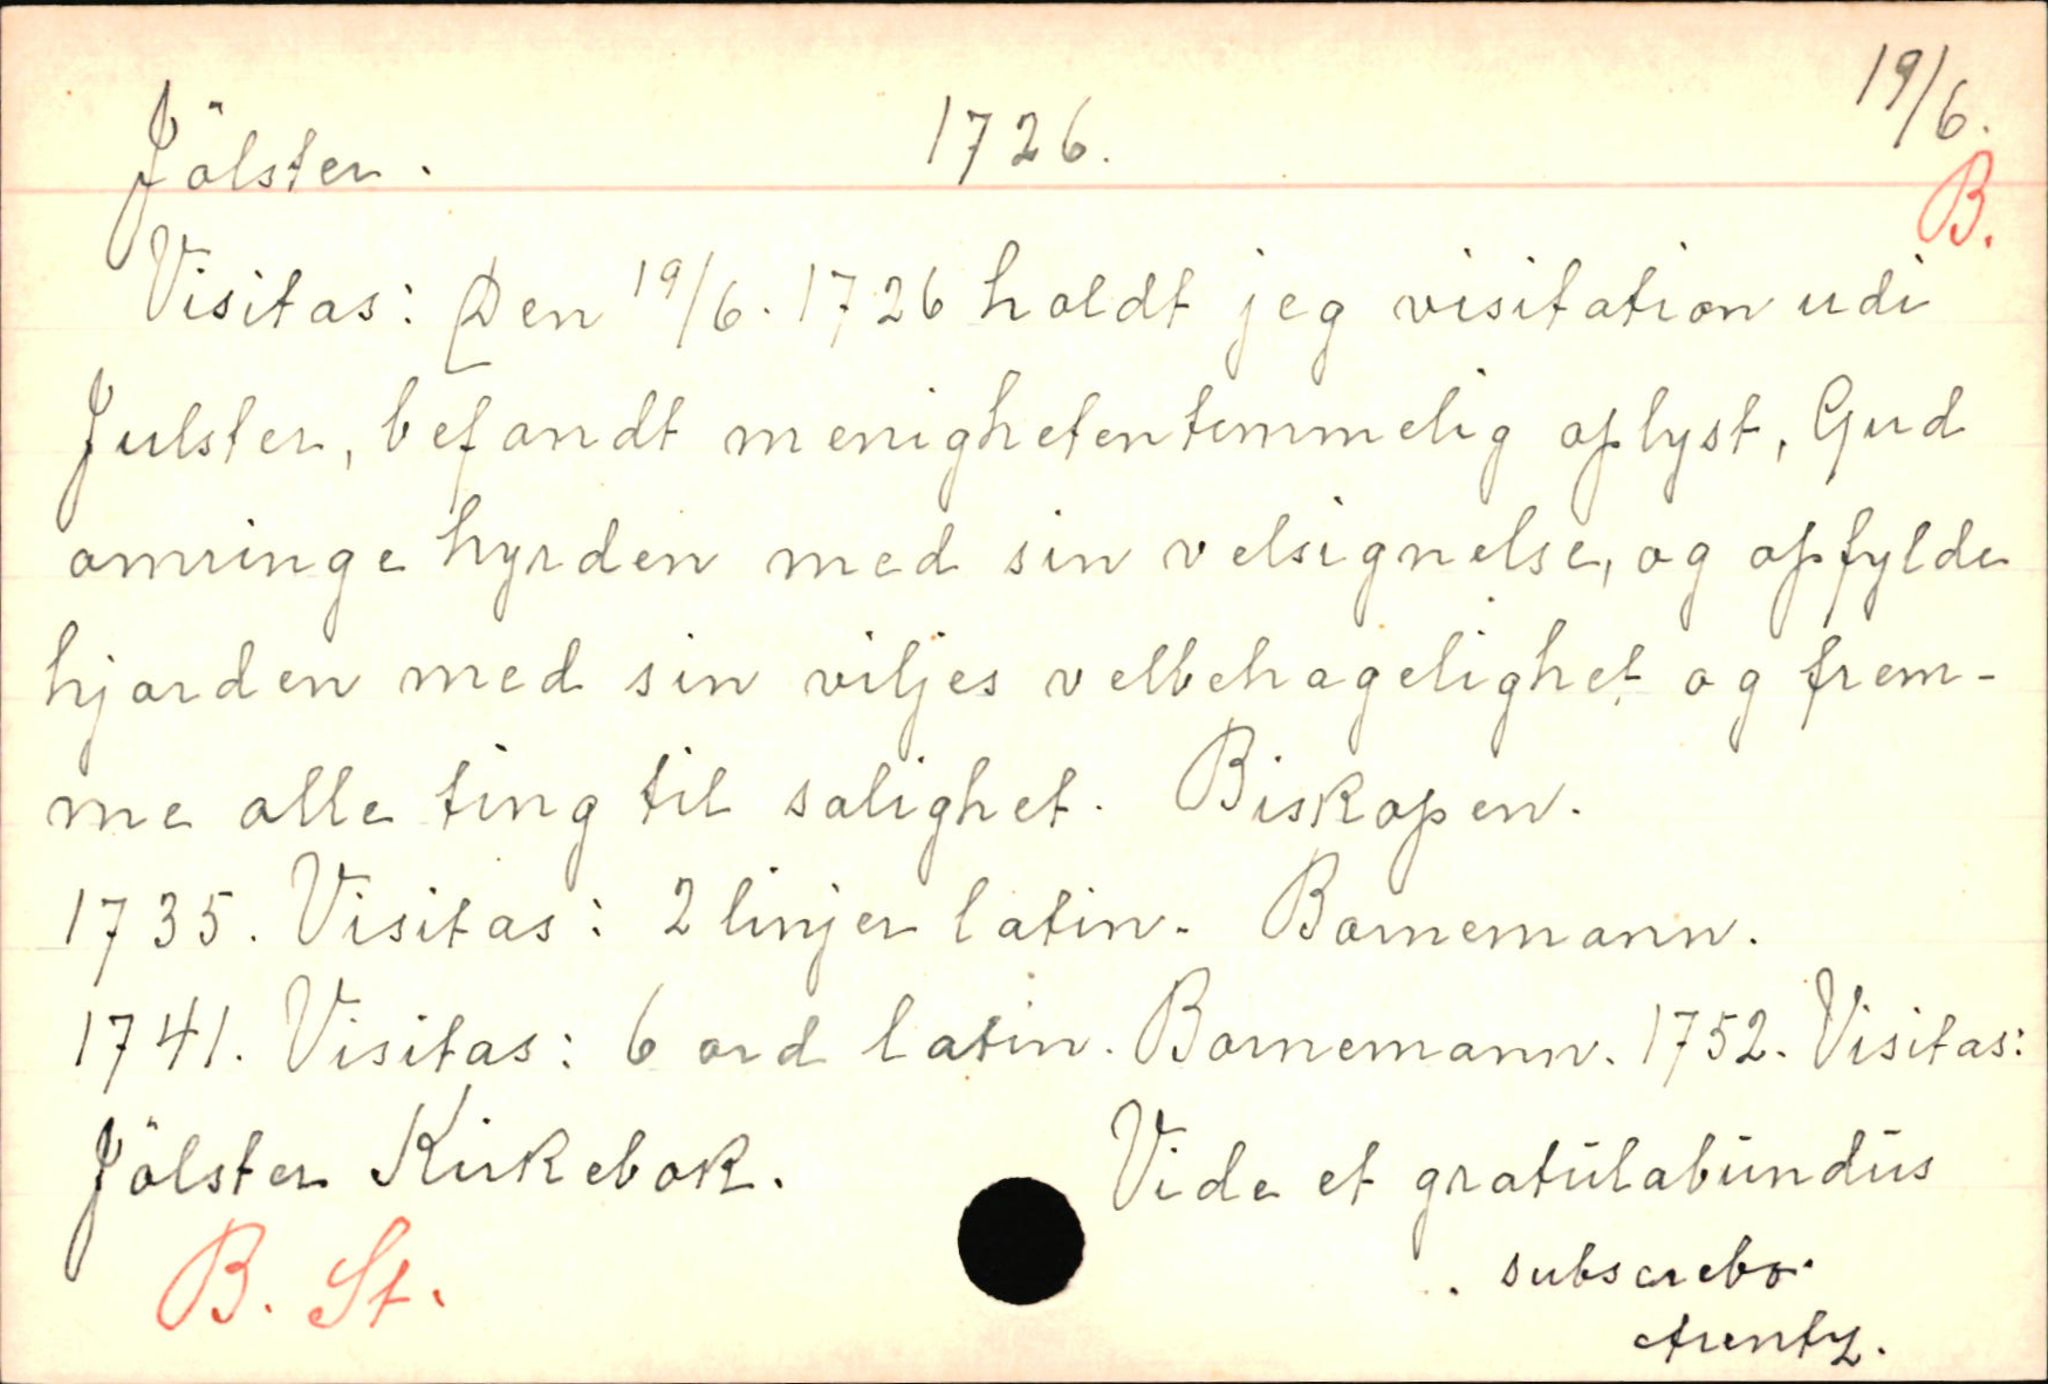 Jölster. 1726. 19/6.
B.
Visitas: Den 19/6. 1726 holdt jeg visitation udi
Julster, befandt menigheten temmelig oplyst, Gud
omringe hyrden med sin velsignelse, og opfylde
hjorden med sin viljes velbehagelighet og frem-
me alle ting til salighet. Biskopen.
1735. Visitas: 2 linjer latin. Bornemann.
1741. Visitas: 6 ord latin. Bornemann. 1752. Visitas:
Jölster Kirkebok. Vide et gratulabundus
subscrebo.
Arentz.
B. St.